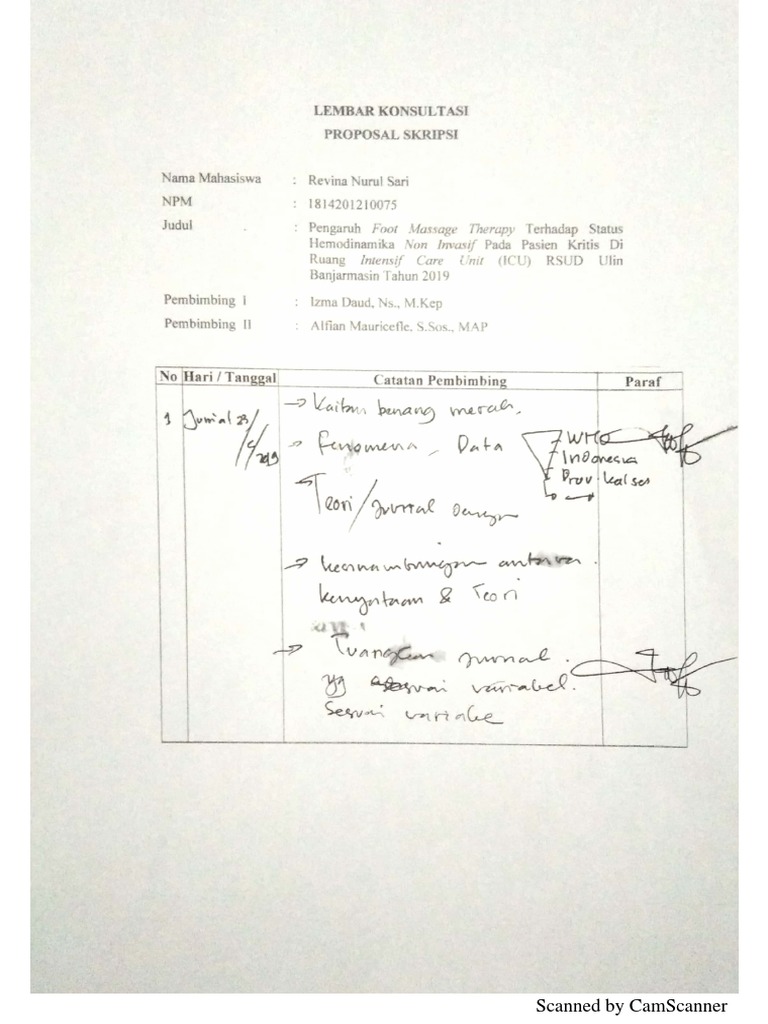 LEMBAR KONSULTASI
PROPOSAL SKRIPSI
Nama Mahasiswa : Revina Nurul Sari
NPM : 1814201210075
Judul : Pengaruh Foot Massage Therapy Terhadap Status
Hemodinamika Non Invasif Pada Pasien Kritis Di
Ruang Intensif Care Unit (ICU) RSUD Ulin
Banjarmasin Tahun 2019
Pembimbing I : Izma Daud, Ns., M.Kep
Pembimbing II : Alfian Mauricefle, S.Sos., MAP
No Hari / Tanggal Catatan Pembimbing Paraf
→ Kaitan benang merah.
1 Jumat 23/ /2019 → Fenomena, Data WHO
Indonesia
Prov. Kalsel
Teori/jurnal
→ kesinambungan antara
kenyataan & Teori
→ Tuangkan jurnal.
yg variabel.
Sesuai variabe
Scanned by CamScanner